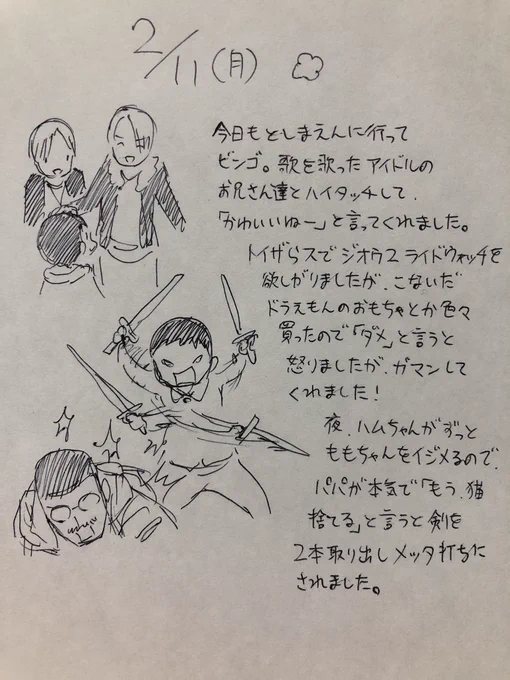 2/11(月)
今日もとしまえんに行って
ビンゴ。歌を歌ったアイドルの
お兄さん達とハイタッチして、
「かわいいねー」と言ってくれました。
トイザらスでジオウ2ライドウォッチを
欲しがりましたが、こないだ
ドラえもんのおもちゃとか色々
買ったので「ダメ」と言うと
怒りましたが、ガマンして
くれました!
夜、ハムちゃんがずっと
ももちゃんをイジメるので、
パパが本気で「もう、猫
捨てる」と言うと剣を
2本取り出しメッタ打ちに
されました。